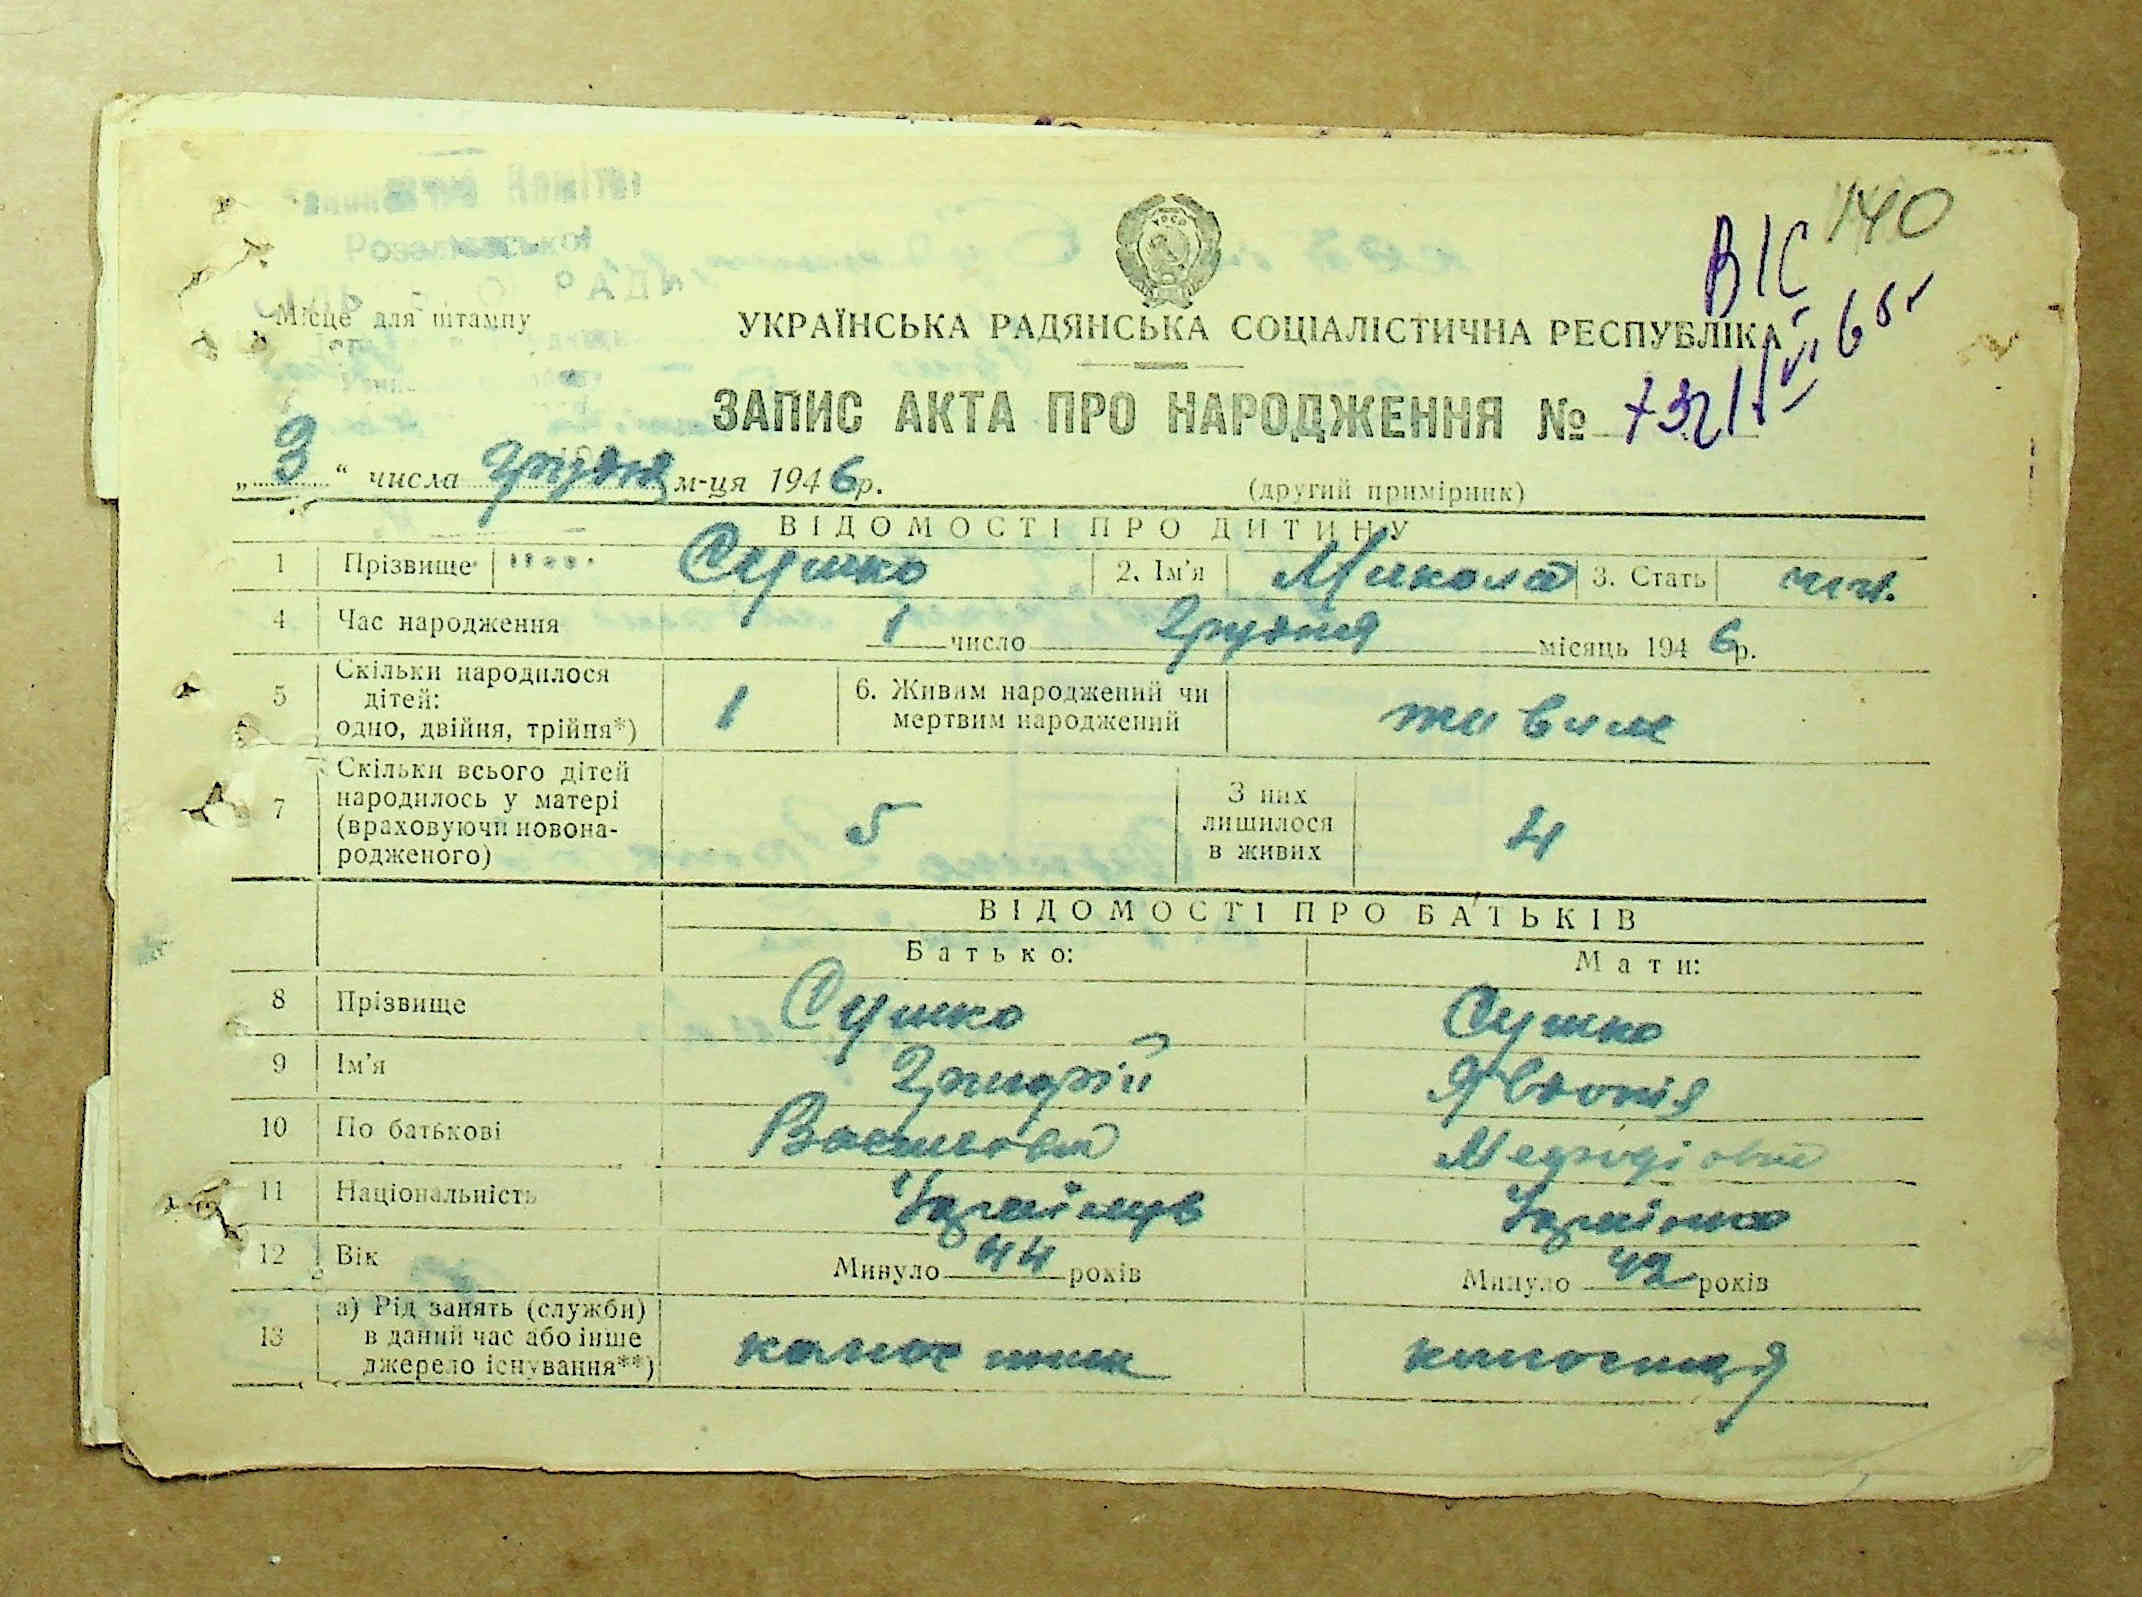 140
ВІС
Місце для штампу
УКРАЇНСЬКА РАДЯНСЬКА СОЦІАЛІСТИЧНА РЕСПУБЛІКА
ЗАПИС АКТА ПРО НАРОДЖЕННЯ №
„3“ числа Грудня м-ця 1946р.
(другий примірник)
ВІДОМОСТІ ПРО ДИТИНУ
1 Прізвище Сушко 2. Ім'я Микола 3. Стать чол.
4 Час народження 1 число Грудня місяць 1946р.
5 Скільки народилося дітей: одно, двійня, трійня*) 1 6. Живим народжений чи мертвим народжений живим
7 Скільки всього дітей народилось у матері (враховуючи новонародженого) 5 З них лишилося в живих 4
ВІДОМОСТІ ПРО БАТЬКІВ
Батько: Мати:
8 Прізвище Сушко Сушко
9 Ім'я Григорій Явдокія
10 По батькові Васильовий Медіодіовни
11 Національність Українців Українка
12 Вік Минуло 44 років Минуло 42 років
13 а) Рід занять (служби) в даний час або інше джерело існування**) колгоспник колгоспниця